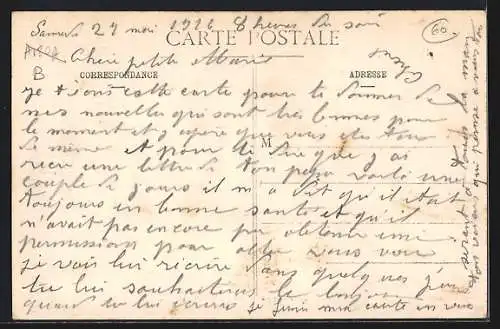 Samedi 27 mai 1916 8 heures du soir
CARTE POSTALE
60
B
Chère petite Marie
CORRESPONDANCE
ADRESSE
je t'écris cette carte pour te donner de
mes nouvelles qui sont très bonnes pour
le moment et j'espère que vous êtes tous
M
de même et pour te dire que j'ai
reçu une lettre de ton papa voilà une
couple de jours il m'a dit qu'il était
toujours en bonne santé et qu'il
n'avait pas encore pu obtenir une
permission pour aller vous voir
je vais lui récrire dans quelques jours
tu lui souhaiteras le bonjour
quand tu lui écriras je finis ma carte en vous
serrant à tous la main
ton qui pense à vous